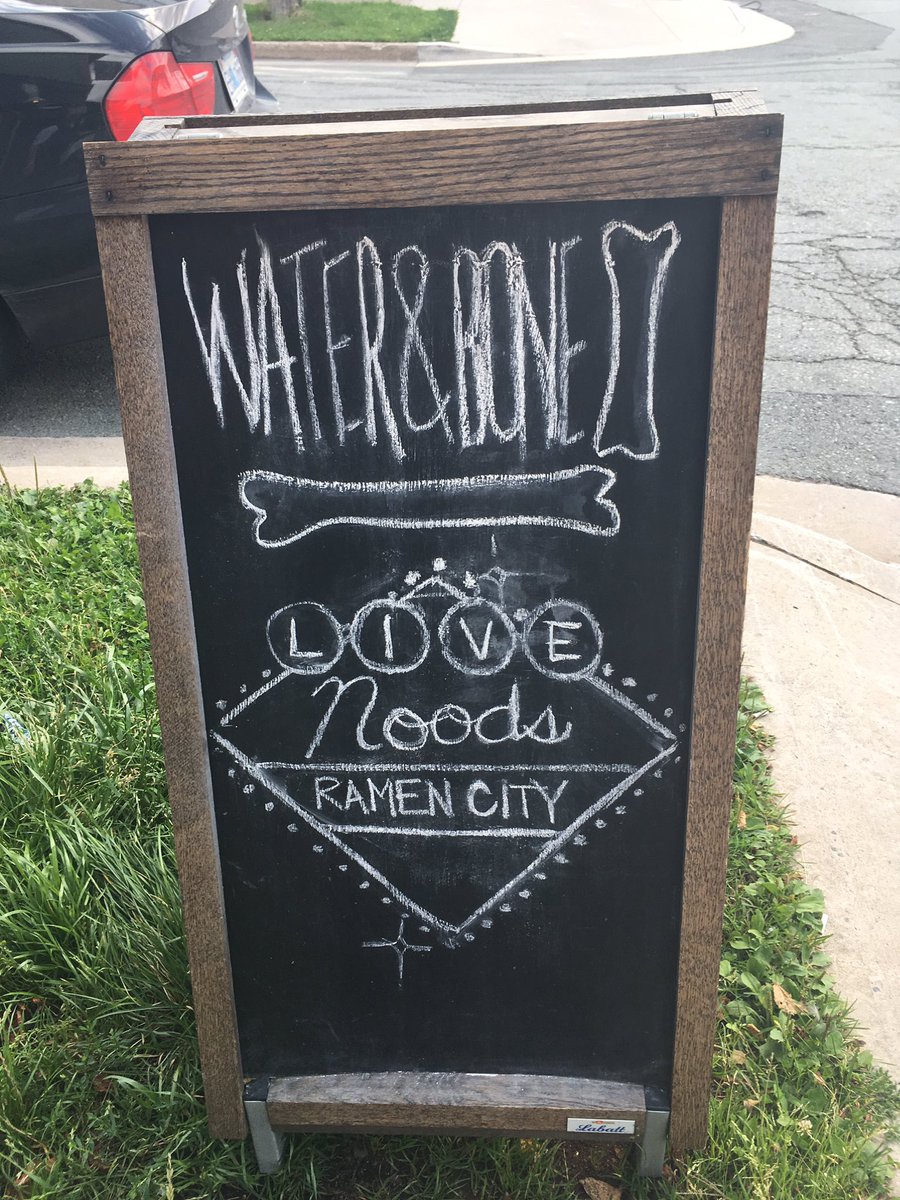 WATER & BONE
LIVE
Noods
RAMEN CITY
Labatt